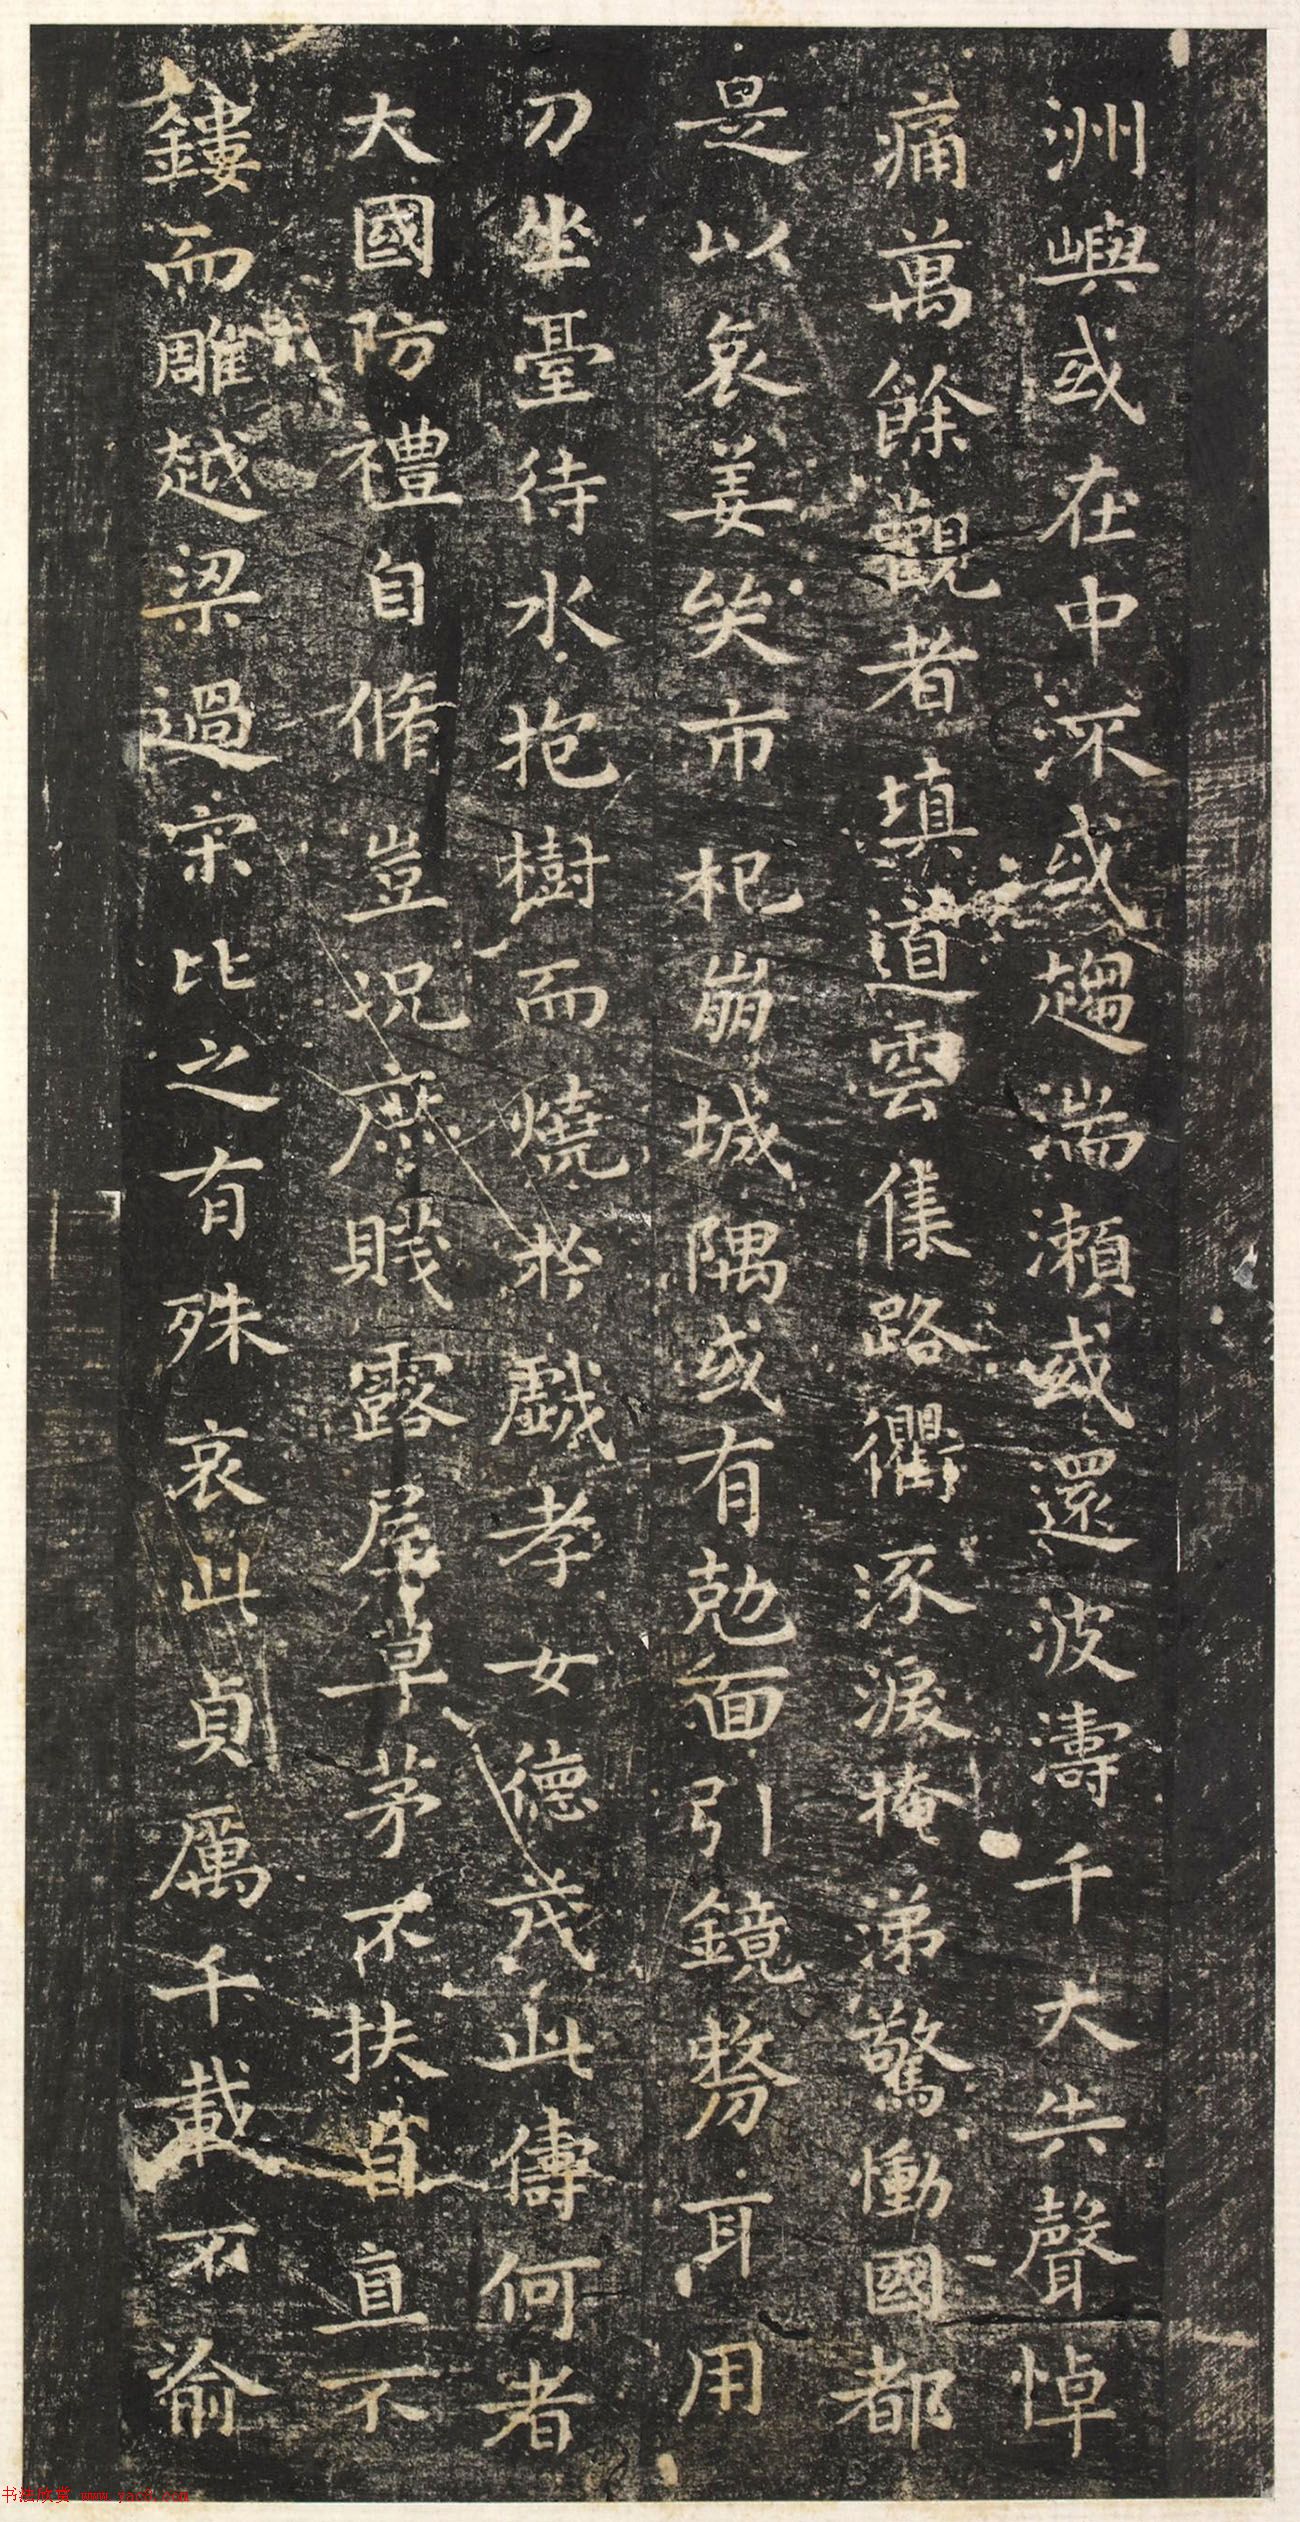 洲嶼或在中流或趨湍瀨或還波濤千夫失聲悼
痛萬餘觀者填道雲集路衢流淚掩涕驚慟國都
是以哀姜哭市杞崩城隅或有剋面引鏡剺耳用
刀坐臺待水抱樹而燒於戲孝女德茂此儔何者
大國防禮自脩豈況庶賤露屋草茅不扶自直不
鏤而雕越梁過宋比之有殊哀此貞厲千載不渝
书法欣赏 www.yac8.com